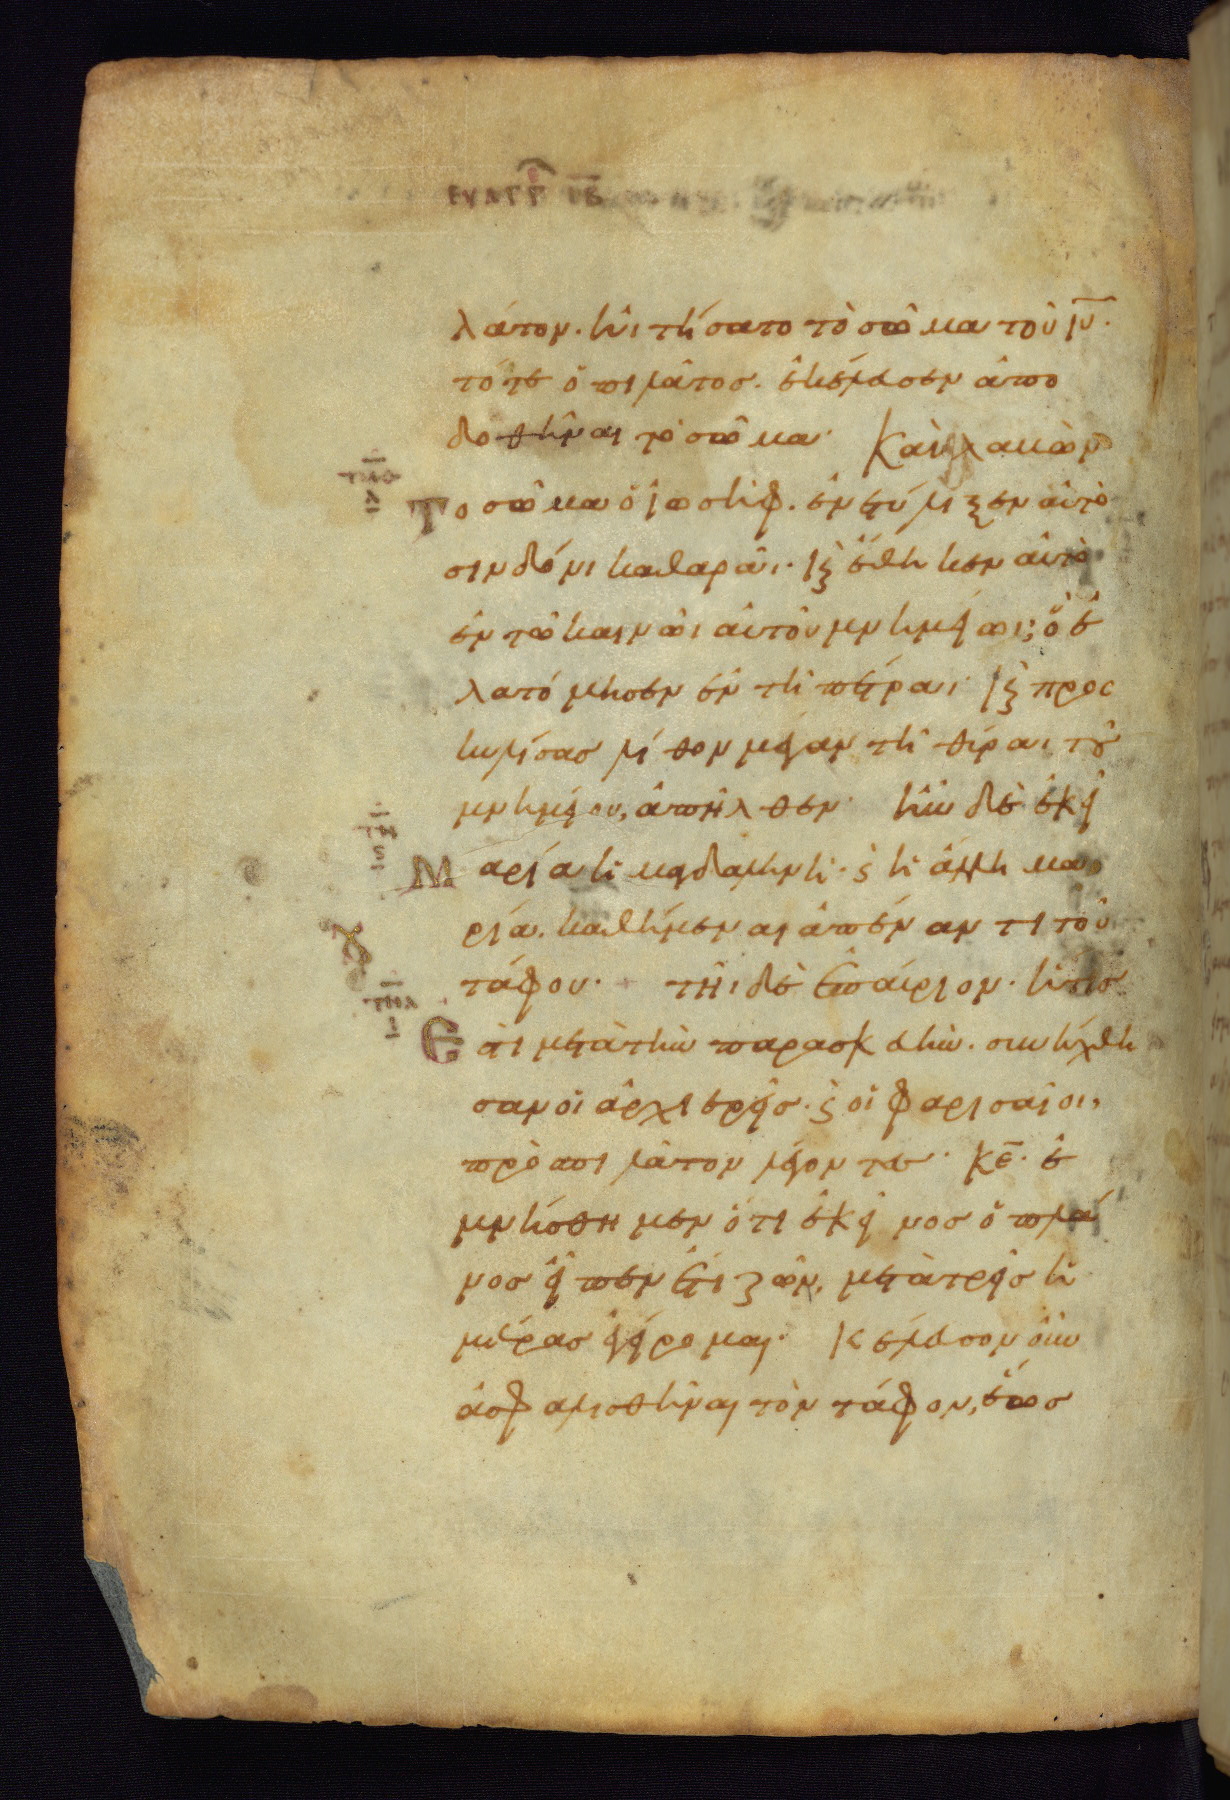 ΕΥΑΓΓ ΙΒ
λάτον. καὶ ἠτήσατο τὸ σῶμα τοῦ ιυ.
τότε ὁ πιλάτος. ἐκέλευσεν ἀπο
δοθῆναι τὸ σῶμα· Καὶ λαβὼν
το σῶμα ὁ ἰωσὴφ. ἐνετύλιξεν αὐτὸ
σινδόνι καθαρᾶι· καὶ ἔθηκεν αὐτὸ
ἐν τῶ καινῶι αὐτοῦ μνημείωι· ὃ ἐ
λατόμησεν ἐν τῆ πέτραι· καὶ προς
κυλίσας λίθον μέγαν τῆ θύραι τοῦ
μνημείου, ἀπῆλθεν· ἦν δὲ ἐκεῖ
Μαρία ἡ μαγδαληνὴ· καὶ ἡ ἄλλη μα
ρία. καθήμεναι ἀπέναντι τοῦ
τάφου· τῆι δὲ ἐπαύριον. ἥτισ
Εστι μετὰ τὴν παρασκευὴν. συνήχθη
σαν οἱ ἀρχιερεῖς· καὶ οἱ φαρισαῖοι,
πρὸς πιλάτον λέγοντες· κε· ἐ
μνήσθημεν ὅτι ἐκεῖνος ὁ πλά
νος εἶπεν ἔτι ζῶν, μετὰ τρεῖς ἡ
μέρας ἐγείρομαι· Κέλευσον οὖν
ἀσφαλισθῆναι τὸν τάφον, ἕως